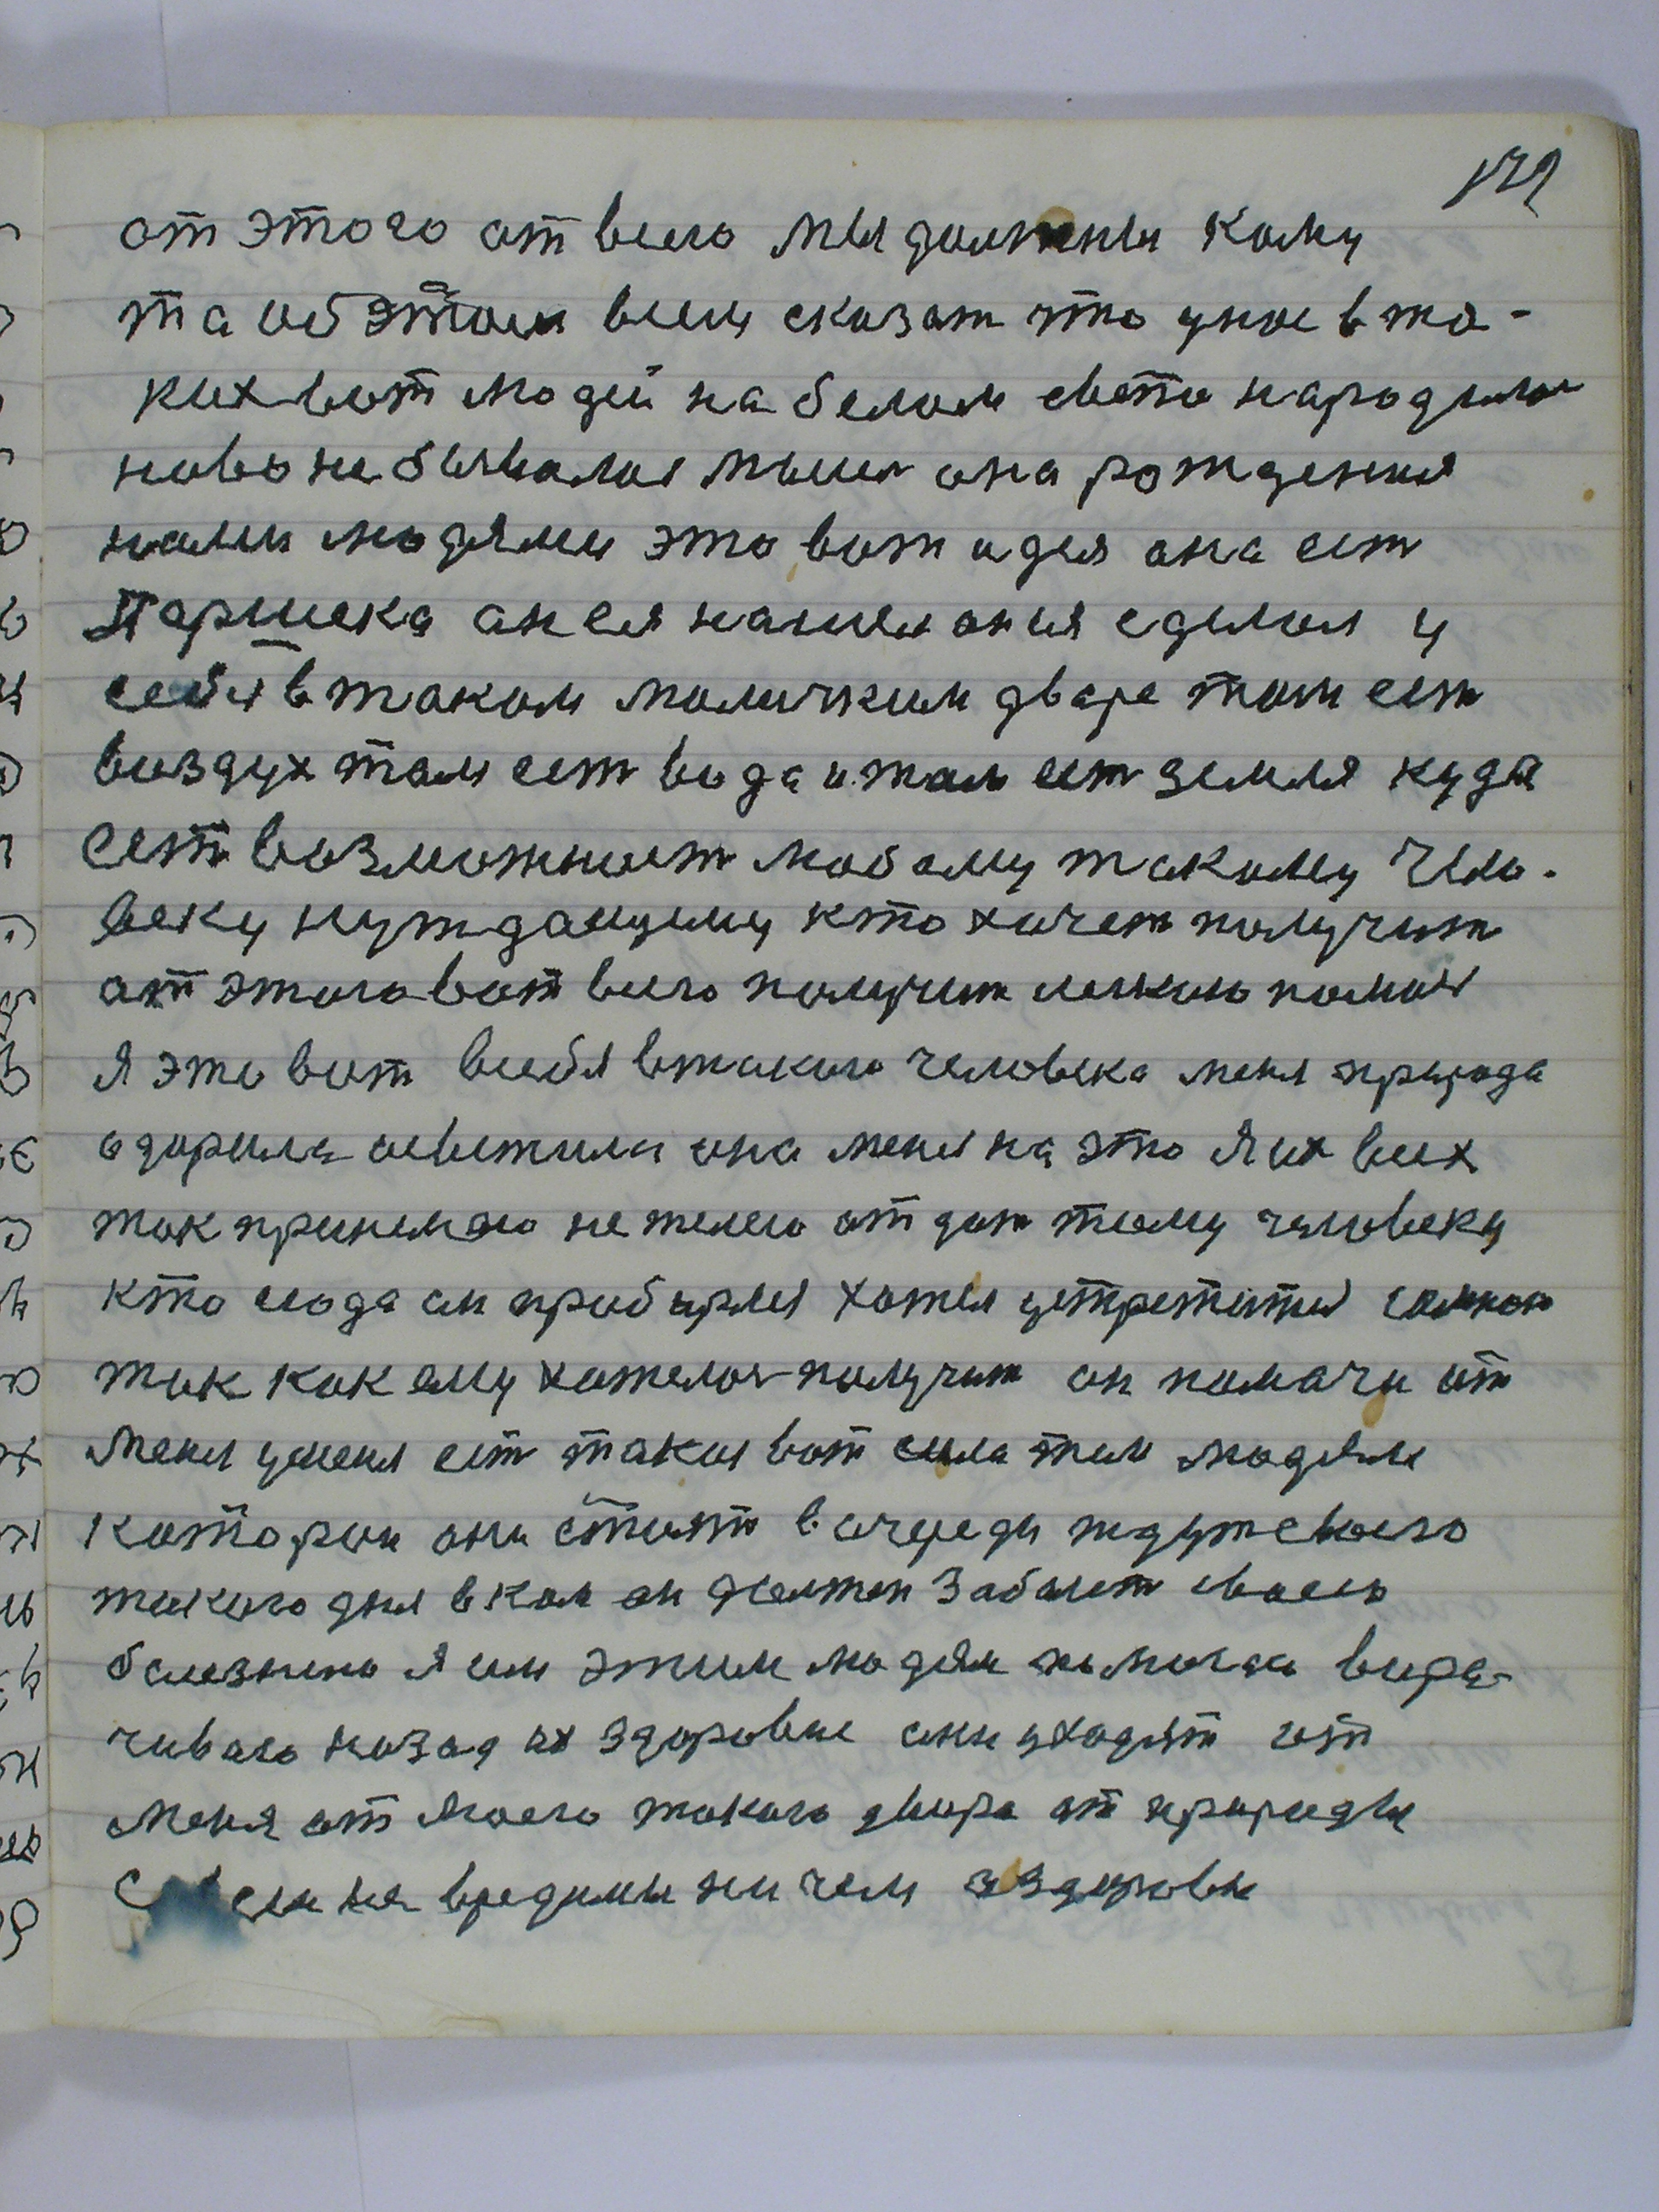 от этого от всего мы должны кому
та об этом всему сказат что у нас в та-
ких вот людей на белом свете народилос
ново не бывалая мысля она рождения
нами людями это вот идея она ест
Паршека он ея нашел он ея сделал у
себя в таком маличким дваре там ест
воздух там ест вода и там ест земля куда
ест возможност любому такому чило-
веку нуждающему кто хочет получит
от этого вот всего получит легкою помощ
я это вот в себя в такого человека меня природа
одарила осветила она меня на это я их всех
так принемаю не жилею отдат тому человеку
кто сюда он пробирался хотел устретится самною
так как ему хотелос получит он помачи от
меня у меня ест такая вот сила тем людям
каторои они стоят в очереди ждут своего
такого дня в ком он должен заболет своею
болезнею я им этим людям помогаю вира-
чиваю назад их здоровие они уходят от
меня от моего такого двора от природы
не вредимы ни чем а здоровы